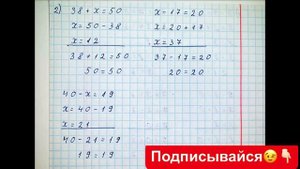 2) 38 + x = 50
x = 50 - 38
x = 12
38 + 12 = 50
50 = 50
x - 17 = 20
x = 20 + 17
x = 37
37 - 17 = 20
20 = 20
40 - x = 19
x = 40 - 19
x = 21
40 - 21 = 19
19 = 19
Подписывайся😉👇